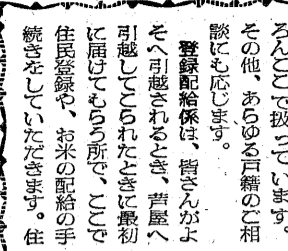 ろんここで扱っています。
その他、あらゆる戸籍のご相
談にも応じます。
登録配給係は、皆さんがよ
そへ引越されるとき、芦屋へ
引越してこられたときに最初
に届けてもらう所で、ここで
住民登録や、お米の配給の手
続きをしていただきます。住